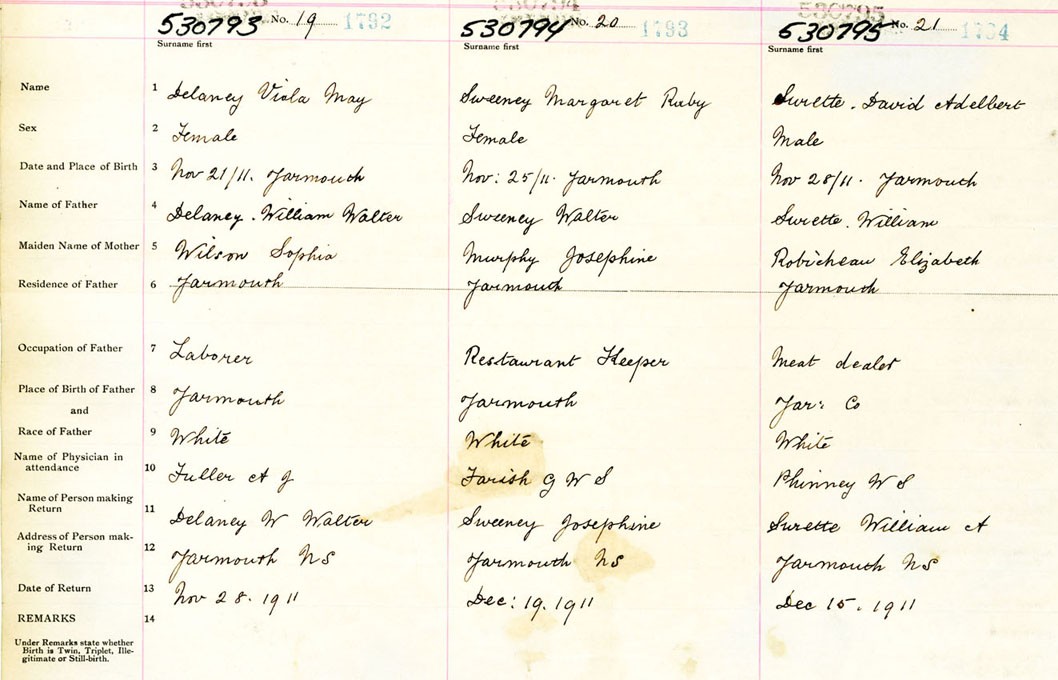 530793 No. 19 1792 530794 No. 20 1793 530795 No. 21 1794
Surname first Surname first Surname first
Name 1 Delaney Viola May Sweeney Margaret Ruby Surette. David Adelbert
Sex 2 Female Female Male
Date and Place of Birth 3 Nov 21/11. Yarmouth Nov: 25/11. Yarmouth Nov 28/11. Yarmouth
Name of Father 4 Delaney. William Walter Sweeney Walter Surette. William
Maiden Name of Mother 5 Wilson Sophia Murphy Josephine Robicheau Elizabeth
Residence of Father 6 Yarmouth Yarmouth Yarmouth
Occupation of Father 7 Laborer Restaurant Keeper Meat dealer
Place of Birth of Father 8 Yarmouth Yarmouth Yar: Co
and
Race of Father 9 White White White
Name of Physician in
attendance 10 Fuller A J Farish G W S Phinney W S
Name of Person making
Return 11 Delaney W Walter Sweeney Josephine Surette William A
Address of Person mak-
ing Return 12 Yarmouth NS Yarmouth NS Yarmouth NS
Date of Return 13 Nov 28. 1911 Dec: 19. 1911 Dec 15. 1911
REMARKS 14
Under Remarks state whether
Birth is Twin, Triplet, Ille-
gitimate or Still-birth.